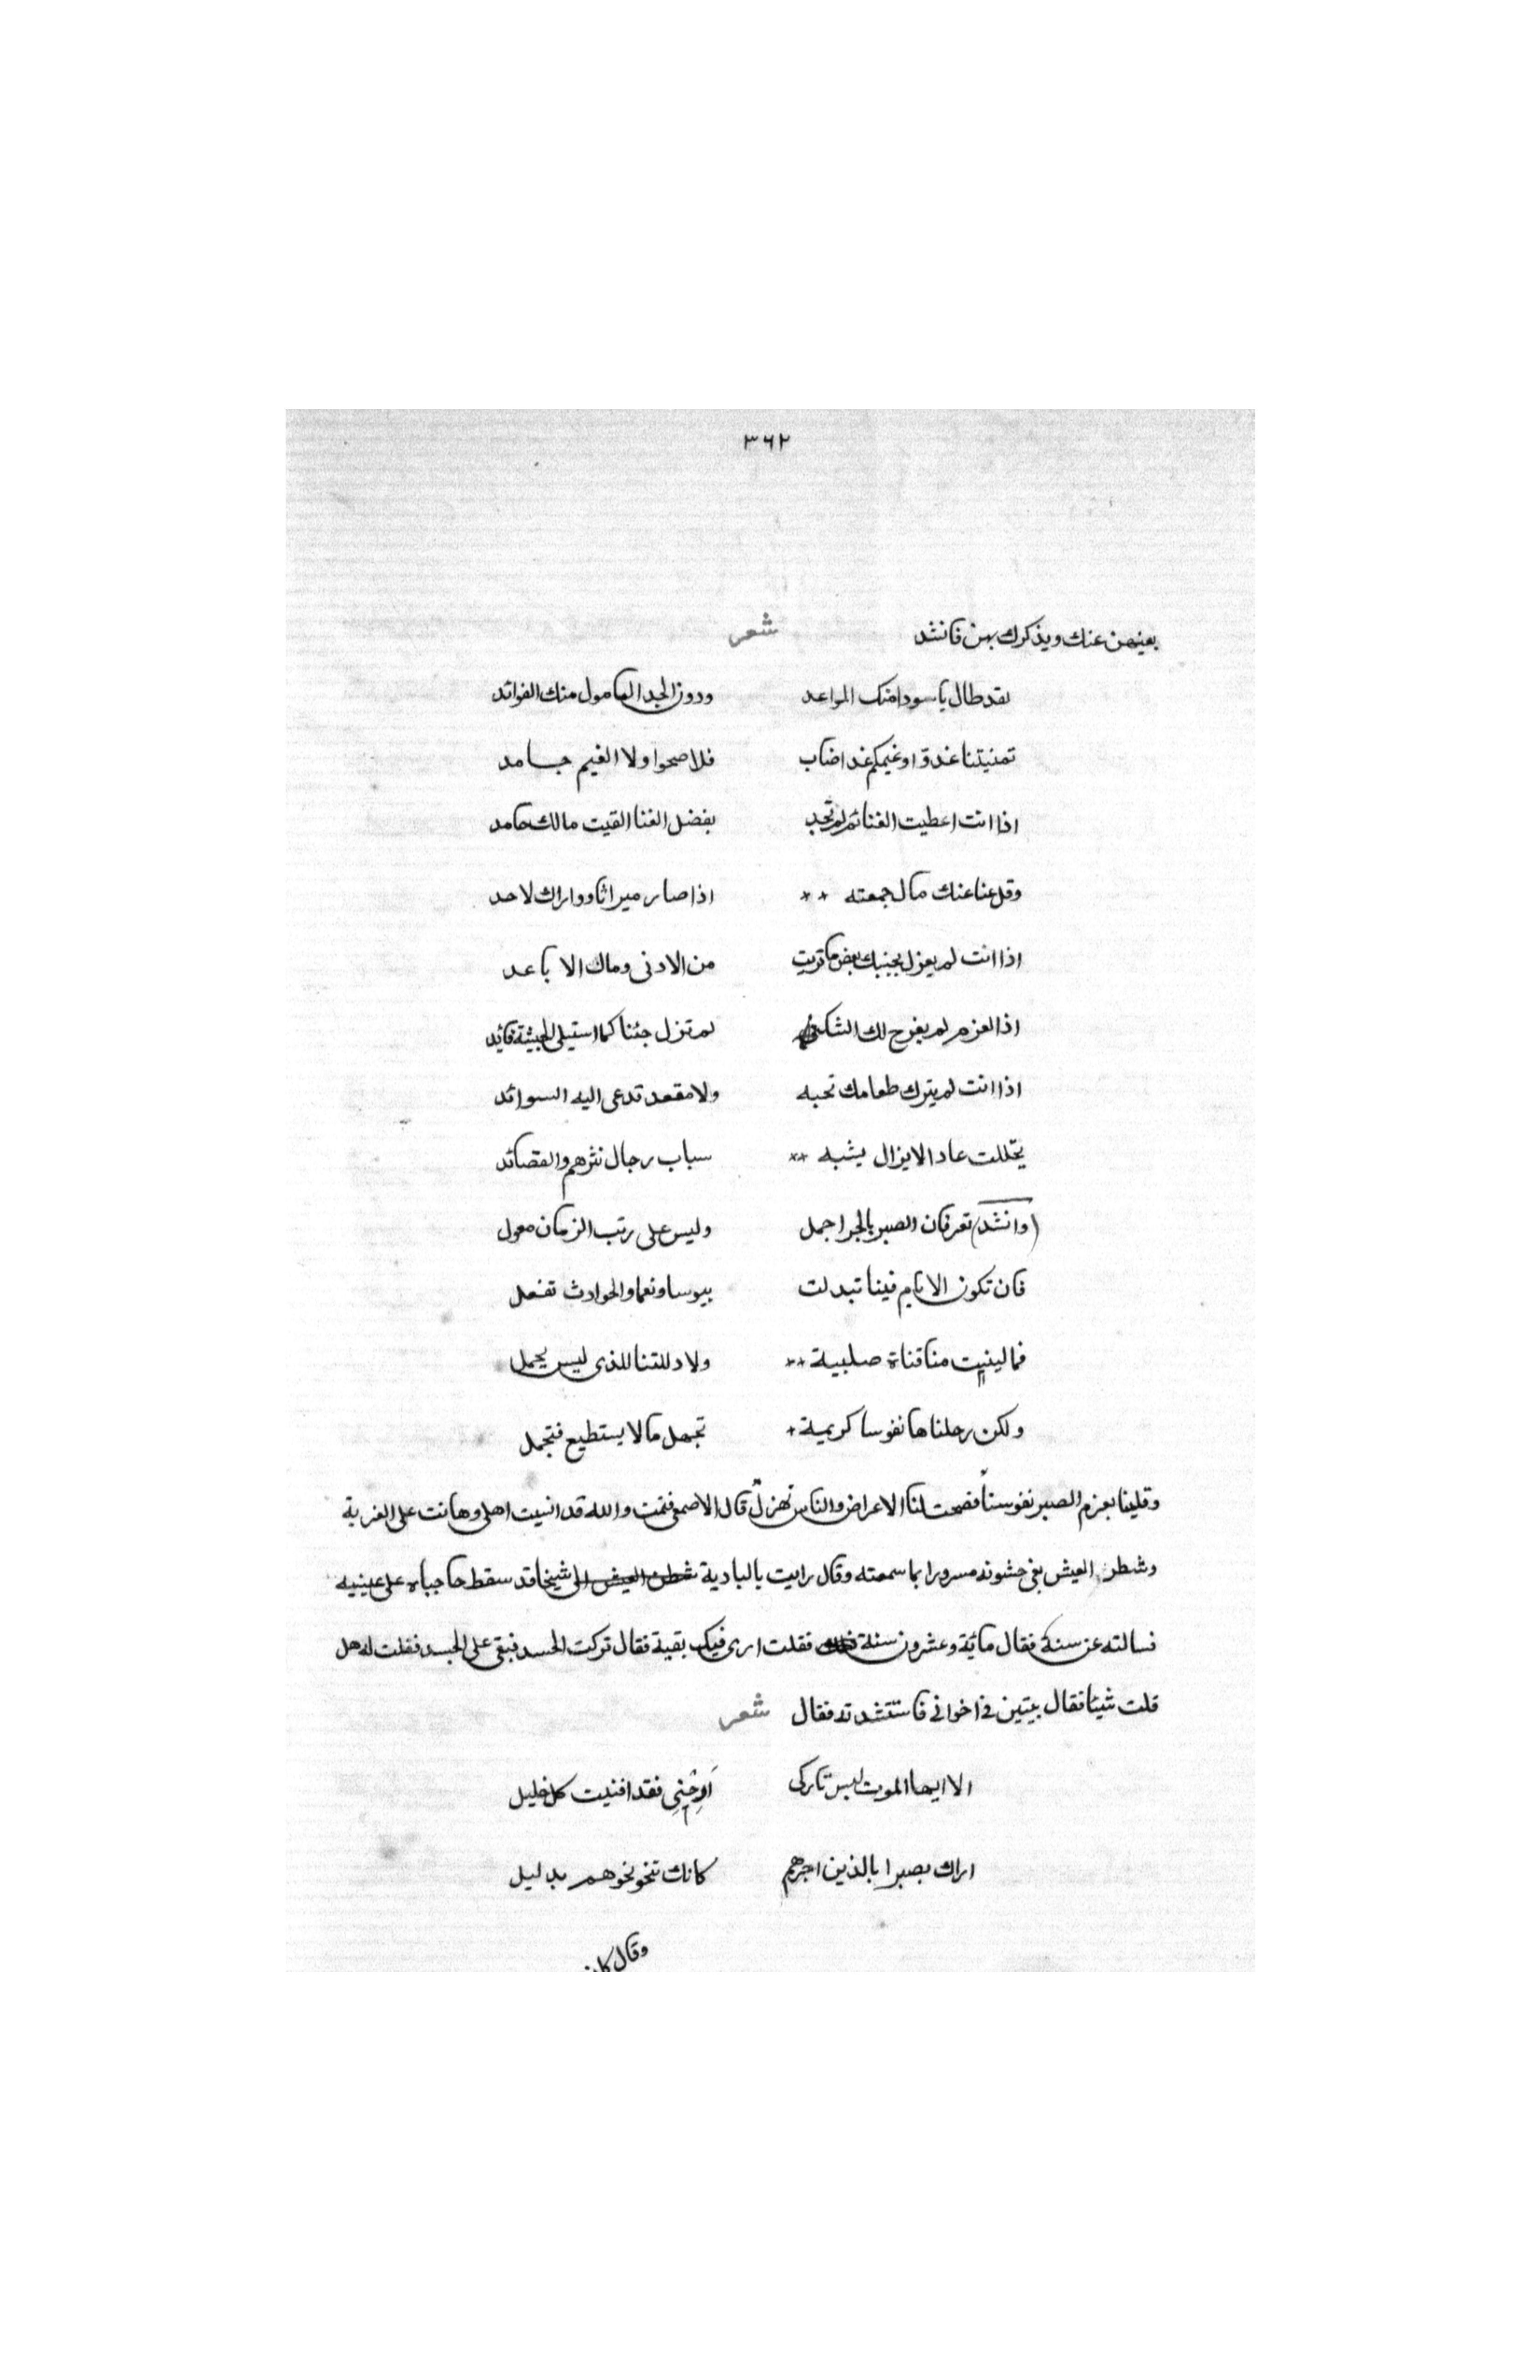 ٣٦٢
بعينهن عنك ويذكرك بهن فانشد شعر
لقد طال يا سودا منك المواعد ودون الجدا المامول منك الفواقد
تمنيتنا غدوا وغيمكم غدا ضباب فلا صحوا ولا الغيم جامد
اذا انت اعطيت الغنا ثم لم تجد بفضل الغنا القيت مالك حامد
وقل عنا عنك مال جمعته ** اذا صار ميراثا وواراك لاحد
اذا انت لم يعزل بجنبك بعض ما تريب من الادنى وماك الاباعد
اذا العزم لم يفرج لك الشك لم تزل جنبا كما استيلى الجنيبة قايد
اذا انت لم يترك طعامك تحبه ولا مقعد تدعى اليه السوائد
يتحللت عاد الايزال يشبه ** سباب رجال نثرهم والقصائد
(وانشد) تعز فان الصبر بالحر اجمل وليس على رتب الزمان معول
فان تكون الايام فينا تبدلت بيوسا ونعما والحوادث تفعل
فما لينيت منا قناة صلبية ** ولا دللتنا للذي ليس يجمل
ولكن رحلناها نفوسا كريمة + تجهل ما لا يستطيع فتجمل
وقلينا بعزم الصبر نفوسنا فضحت لنا الاعراض والناس تهزل قال الاصمعي فنمت والله قد انسيت اهلي وهانت على الغربة
وشطن العيش بغى حشونه مسرورا بما سمعته وقال رايت بالبادية شيخا قد سقط حاجباه على عينيه
فسالته عن سنه فقال مائة وعشرون سنة فقلت ارى فيك بقية فقال تركت الحسد فبقى على الجسد فقلت له هل
قلت شيئا فقال بيتين في اخواني فاستنشدته فقال شعر
الا ايها الموت ليس تاركي ارحني فقد افنيت كل خليل
اراك بصيرا بالذين اجرهم كانك تنحو نحوهم بدليل
وقال كان